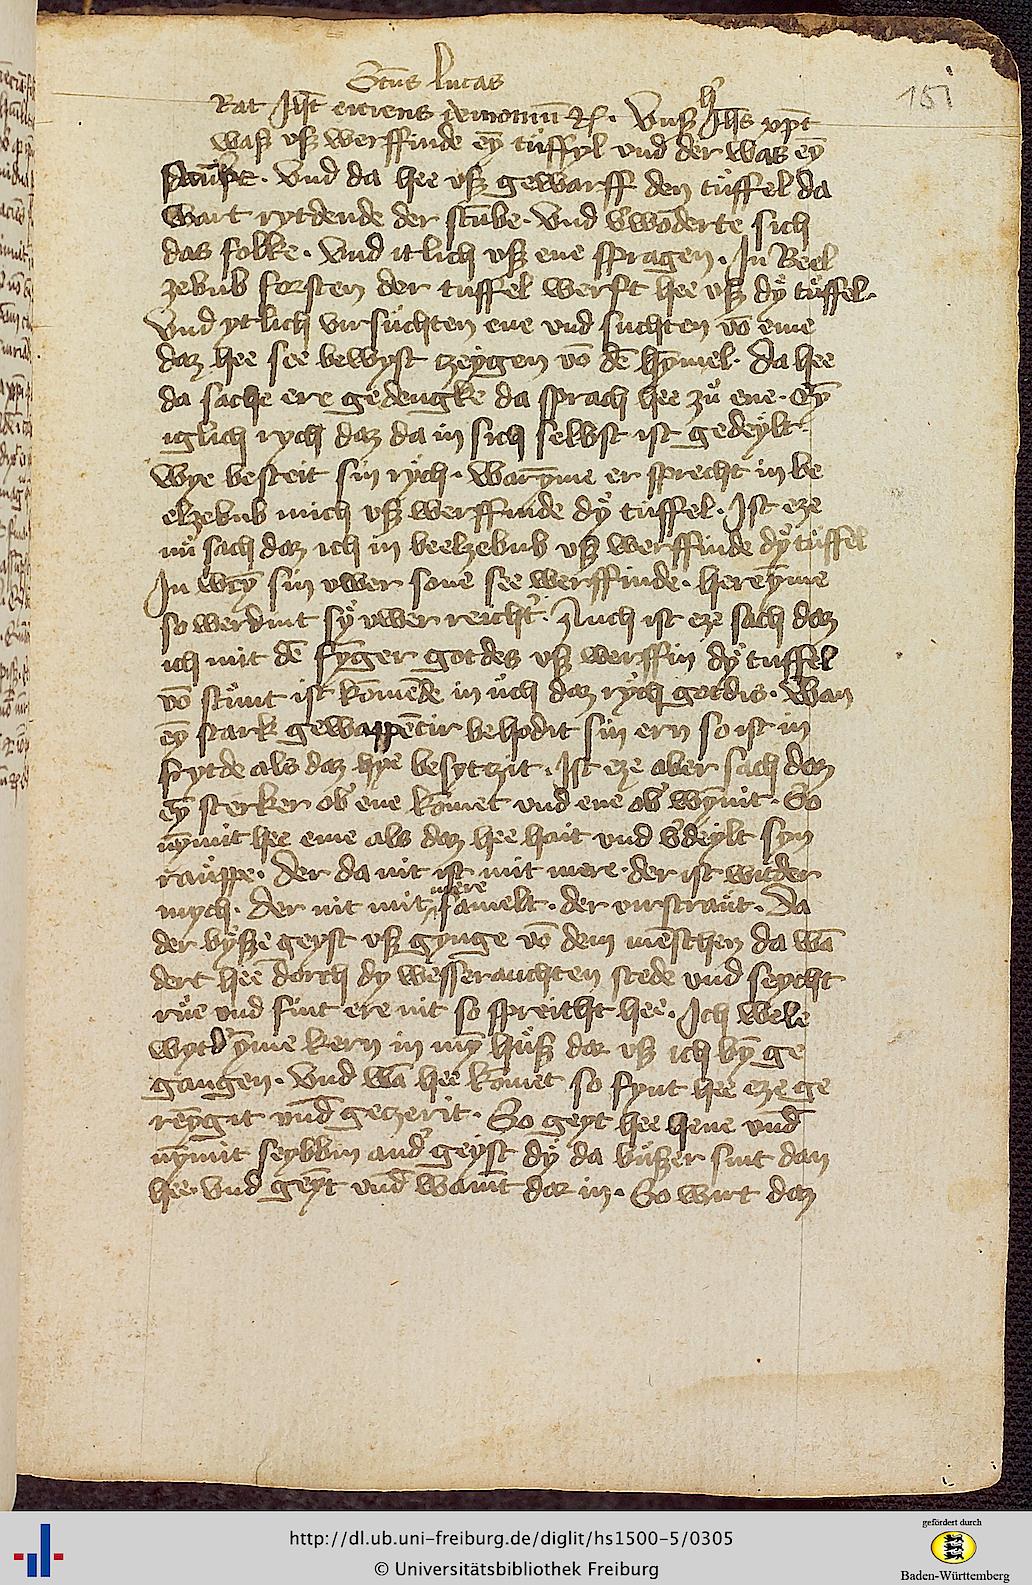 Sctus lucas
151
Rat Jhs̄ eiciens demoniū ꝛc. Vnß h̓ Jhs xp̄c
waß vß werffinde eȳ tuͤffyl vnd der was eȳ
stūbe. Vnd da hee vß gewarff den tuͤffel da
wart rytdende der stūbe. Vnd v̓wōderte sich
das folke. Vnd itlich vß ene spragen. In Beel
zebub forsten der tuffel werft hee vß dÿ tuͤffel.
Vnd ytlich virsuͤchten ene vnd suchten vō eme
daz hee see bewyst czeygen vō dē hȳmel. Da hee
da sache ere gedengke da sprach hee zuͤ ene. Eȳ
iglich rych daz da in sich selbst ist gedeylt.
wye besteit sin rych. warȳme er sprecht in be
elzebub mich vß werffinde dÿ tuffel. Ist eze
nuͤ sach daz ich in beelzebub vß werffinde dÿ tuͤffel
In wēȳ sin vwer sone see werffinde. herēȳme
so werdint sÿ vwer reicht̓. Auch ist eze sach daz
ich mit dē fȳger gotdes vß werffin dÿ tuffel
vō stuͤnt ist kōmēde in uͤch daz rych gotdis. Wan
eȳ stark gewappēcir behodit sin ern so ist in
frytde als daz hye besytczit. Ist eze aber sach daz
eȳ sterker ob̓ ene kōmet vnd ene ob̓ wȳnit. So
nȳmit hee eme als daz hee hait vnd v̓deylt syn
rauͤppe. Der da nit ist mit mere. der ist witder
mych. Der nit mit mere samelt. der virstrauͤt. Da
der byͤsze geyst vß gynge vō dem mēschen da wā
dert hee dorch dy wesserauchten stede vnd seycht
ruͤe vnd fint ere nit so spreitht hee. Ich wele
wytd̓ ȳme kern in mȳ huͤß dar vß ich bȳ ge
gangen. Vnd wā hee kōmet so fynt hee eze ge
reȳgit vnd̄ geczerit. So geyt hee hene vnd̄
nȳmit seybbin and̓ geyst dÿ da buͤßer sint dan
hee. vnd geyt vnd̄ wāint dar in. So wirt daz
http://dl.ub.uni-freiburg.de/diglit/hs1500-5/0305
© Universitätsbibliothek Freiburg
gefördert durch
Baden-Württemberg